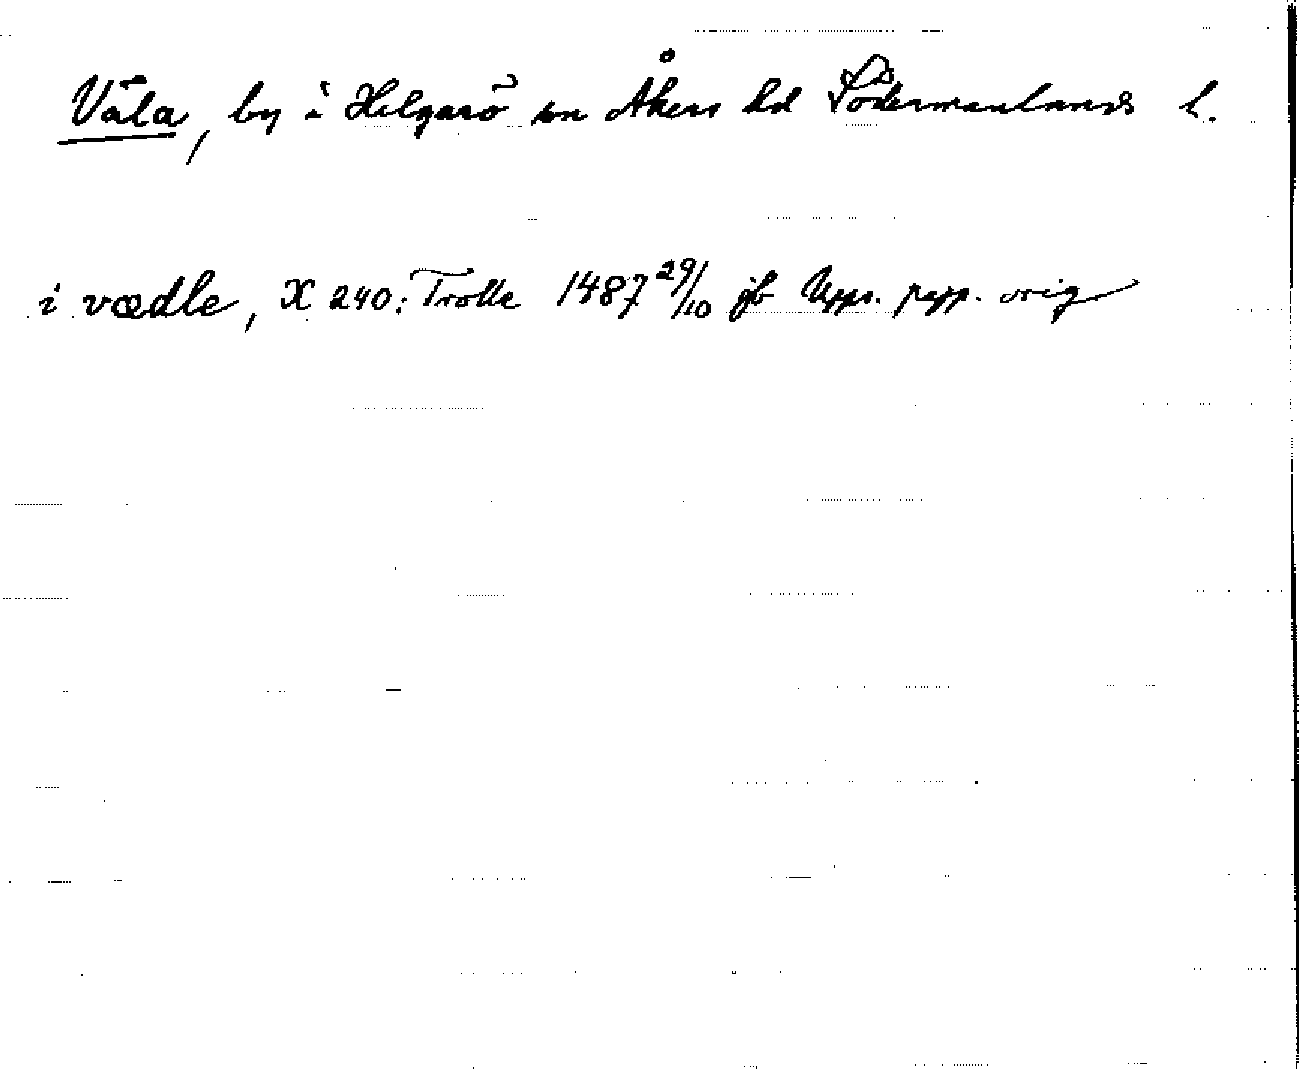 Väla, by i Helgarö sn Åkers hd Södermanlands l.
i vædle, X 240: Trolle 1487 29/10 jb Upps. papp. orig